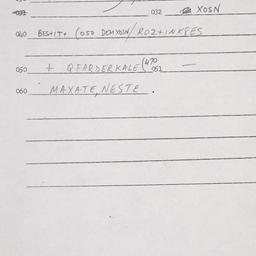 032 XOSN
040 BESTIT+ (050 DEMXOSN/ROZTINKPES
050 + QFARDERKALE (470
052 —
060 MAXATE, NESTE .